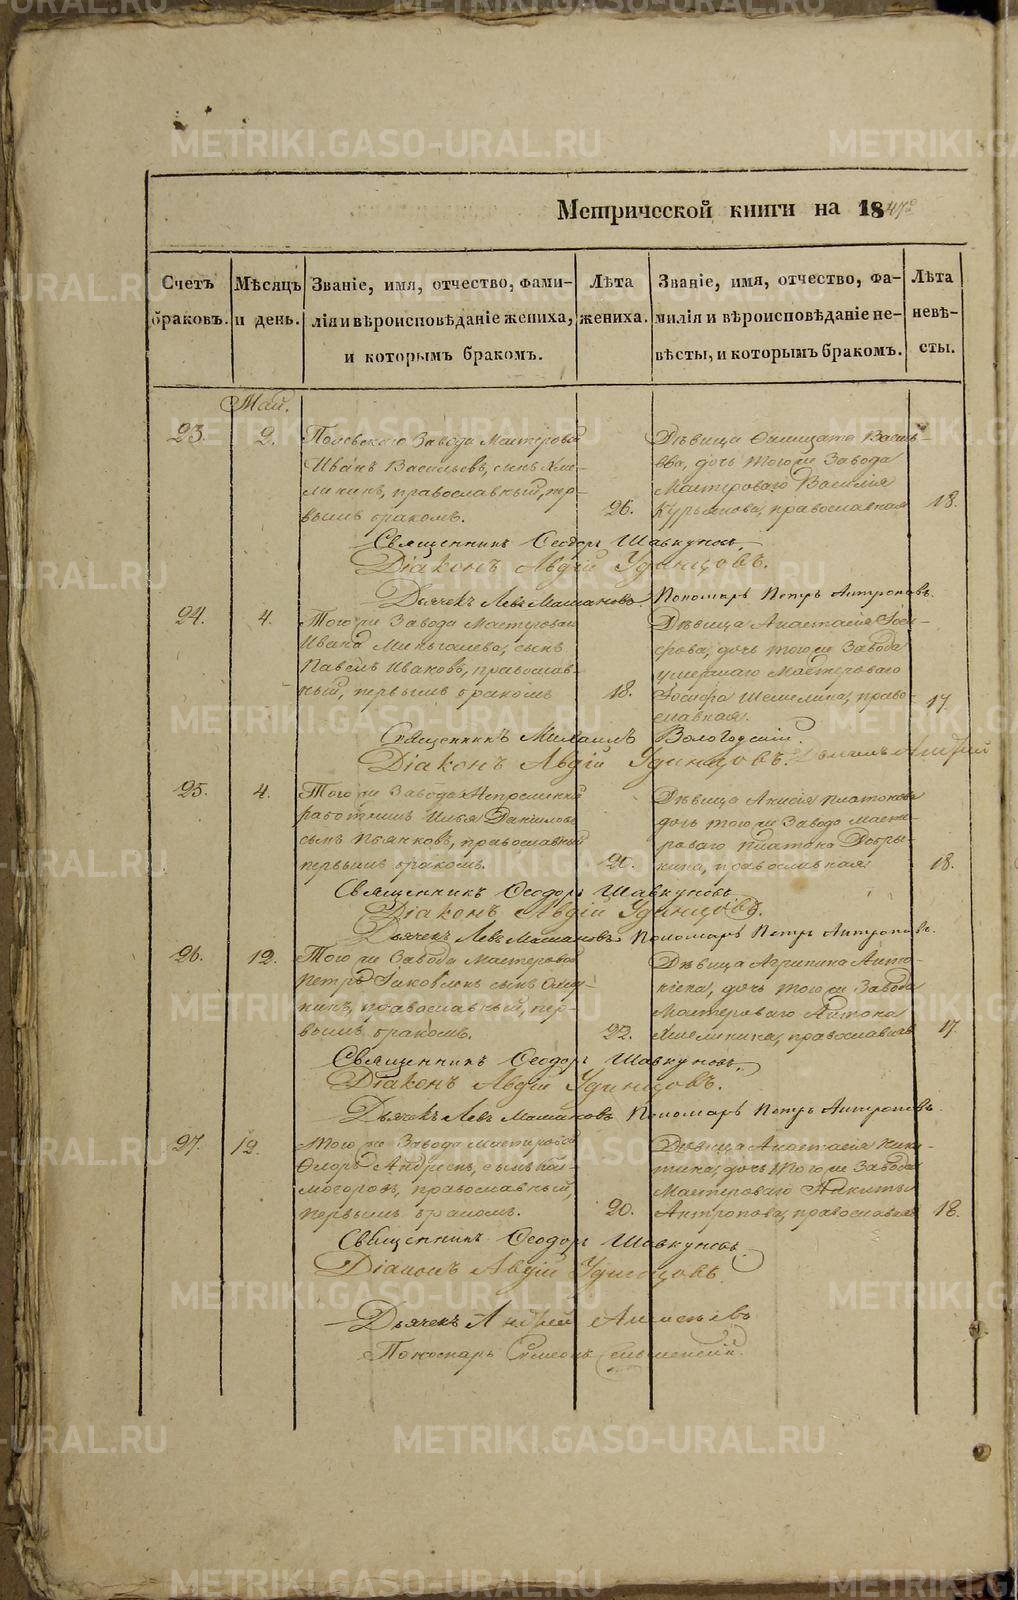 METRIKI.GASO-URAL.RU
Метрической книги на 1847й
Счетъ браковъ.
Мѣсяцъ и день.
Званіе, имя, отчество, фами-
лія и вѣроисповѣданіе жениха,
и которымъ бракомъ.
Лѣта
жениха.
Званіе, имя, отчество, фа-
милія и вѣроисповѣданіе не-
вѣсты, и которымъ бракомъ.
Лѣта
невѣ-
сты.
Май.
23. 2.
Полевскаго Завода Мастеровой
Иванъ Васильевъ, сынъ Хме-
лининъ, православный, пер-
вымъ бракомъ.
26.
Дѣвица Василь-
ева, дочь того же Завода
Мастероваго Василія
Курьянова, православная
18.
Священникъ Ѳеодоръ Шавкуновъ.
Діаконъ Авдій Удинцовъ.
Дьячекъ Левъ Пономарь Петръ Антроповъ.
24. 4.
Того же Завода Мастероваго
Ивана сынъ
Павелъ Ивановъ, православ-
ный, первымъ бракомъ
18.
Дѣвица Анастасія Іоси-
фова, дочь того же Завода
умершаго Мастероваго
Іосифа Шемелина, право-
славная.
17.
Священникъ Михаилъ Вологодскій.
Діаконъ Авдій Удинцовъ. Андрей
25. 4.
Того же Завода Непременный
работникъ Илья Даниловъ
сынъ Пьянковъ, православный
первымъ бракомъ.
20.
Дѣвица Анисія Платонова
дочь того же Завода масте-
роваго Платона Добры-
нина, православная
18.
Священникъ Ѳеодоръ Шавкуновъ.
Діаконъ Авдій Удинцовъ.
Дьячекъ Левъ Пономарь Петръ Антроповъ.
26. 12.
Того же Завода Мастеровой
Петръ Іаковлевъ сынъ
православный, пер-
вымъ бракомъ.
22.
Дѣвица Агрипина Анто-
нова, дочь того же Завода
Мастероваго Антона
Хмелинина, православная
17.
Священникъ Ѳеодоръ Шавкуновъ.
Діаконъ Авдій Удинцовъ.
Дьячекъ Левъ Пономарь Петръ Антроповъ.
27. 12.
Того же Завода Мастеровой
Ѳедоръ Андреевъ, сынъ Кол-
могоровъ, православный,
первымъ бракомъ.
20.
Дѣвица Анастасія Ники-
тина, дочь того же Завода
Мастероваго Никиты
Антропова, православная
18.
Священникъ Ѳеодоръ Шавкуновъ.
Діаконъ Авдій Удинцовъ.
Дьячекъ Андрей
Пономарь Симеонъ